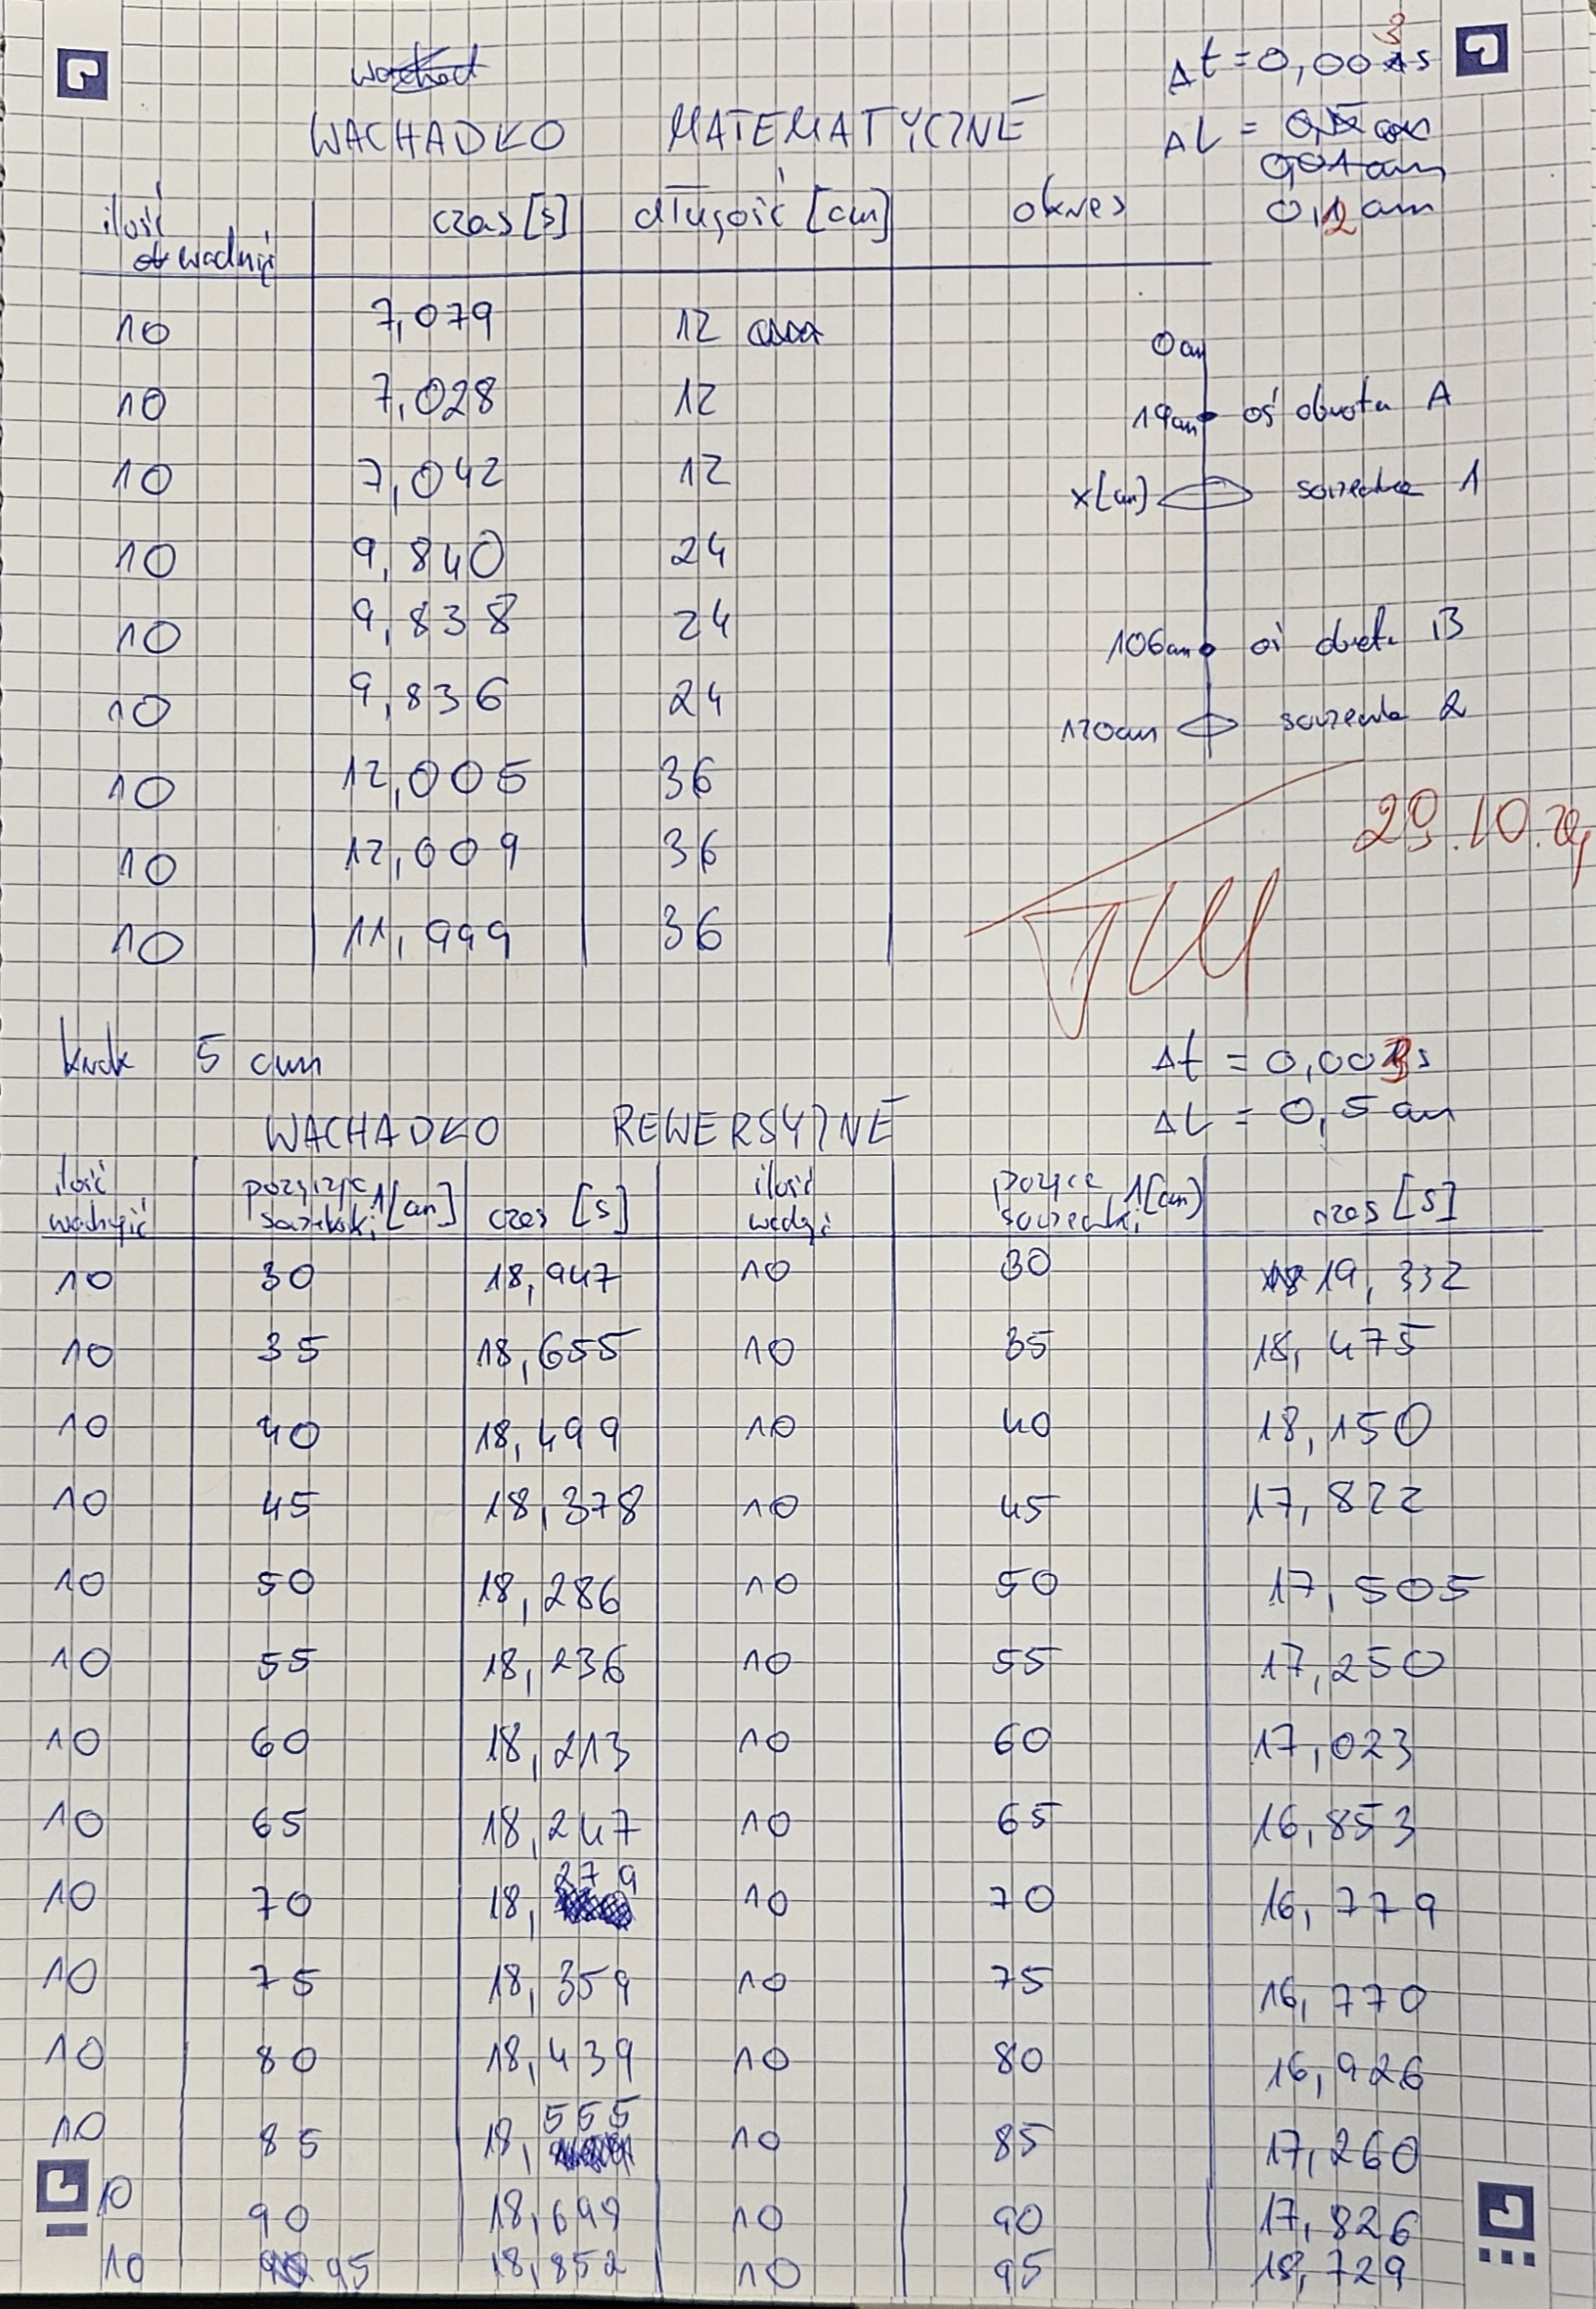 WACHADŁO MATEMATYCZNE
Δt = 0,003s
ΔL =
0,12 cm
ilość wachnięć czas [s] długość [cm] okres
10 7,079 12
10 7,028 12
10 7,042 12
10 9,840 24
10 9,838 24
10 9,836 24
10 12,005 36
10 12,009 36
10 11,999 36
0cm
19cm oś obrotu A
x[cm] soczewka 1
106cm oś obrotu B
120cm soczewka 2
29.10.24
krok 5 cm
Δt = 0,003s
ΔL = 0,5 cm
WACHADŁO REWERSYJNE
ilość wachnięć pozycja soczewki 1[cm] czas [s] ilość wachnięć pozycja soczewki 1[cm] czas [s]
10 30 18,947 10 30 19,332
10 35 18,655 10 35 18,475
10 40 18,499 10 40 18,150
10 45 18,378 10 45 17,822
10 50 18,286 10 50 17,505
10 55 18,236 10 55 17,250
10 60 18,213 10 60 17,023
10 65 18,247 10 65 16,853
10 70 18,279 10 70 16,779
10 75 18,359 10 75 16,770
10 80 18,439 10 80 16,926
10 85 18,555 10 85 17,260
10 90 18,699 10 90 17,826
10 95 18,852 10 95 18,729